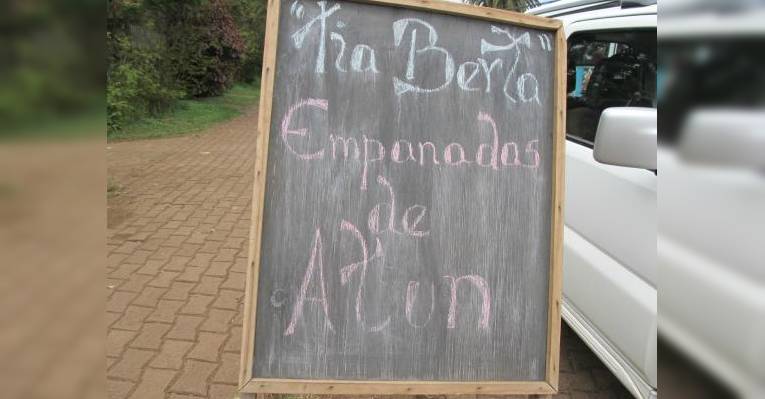 "Tia Berta"
Empanadas
de
Atun